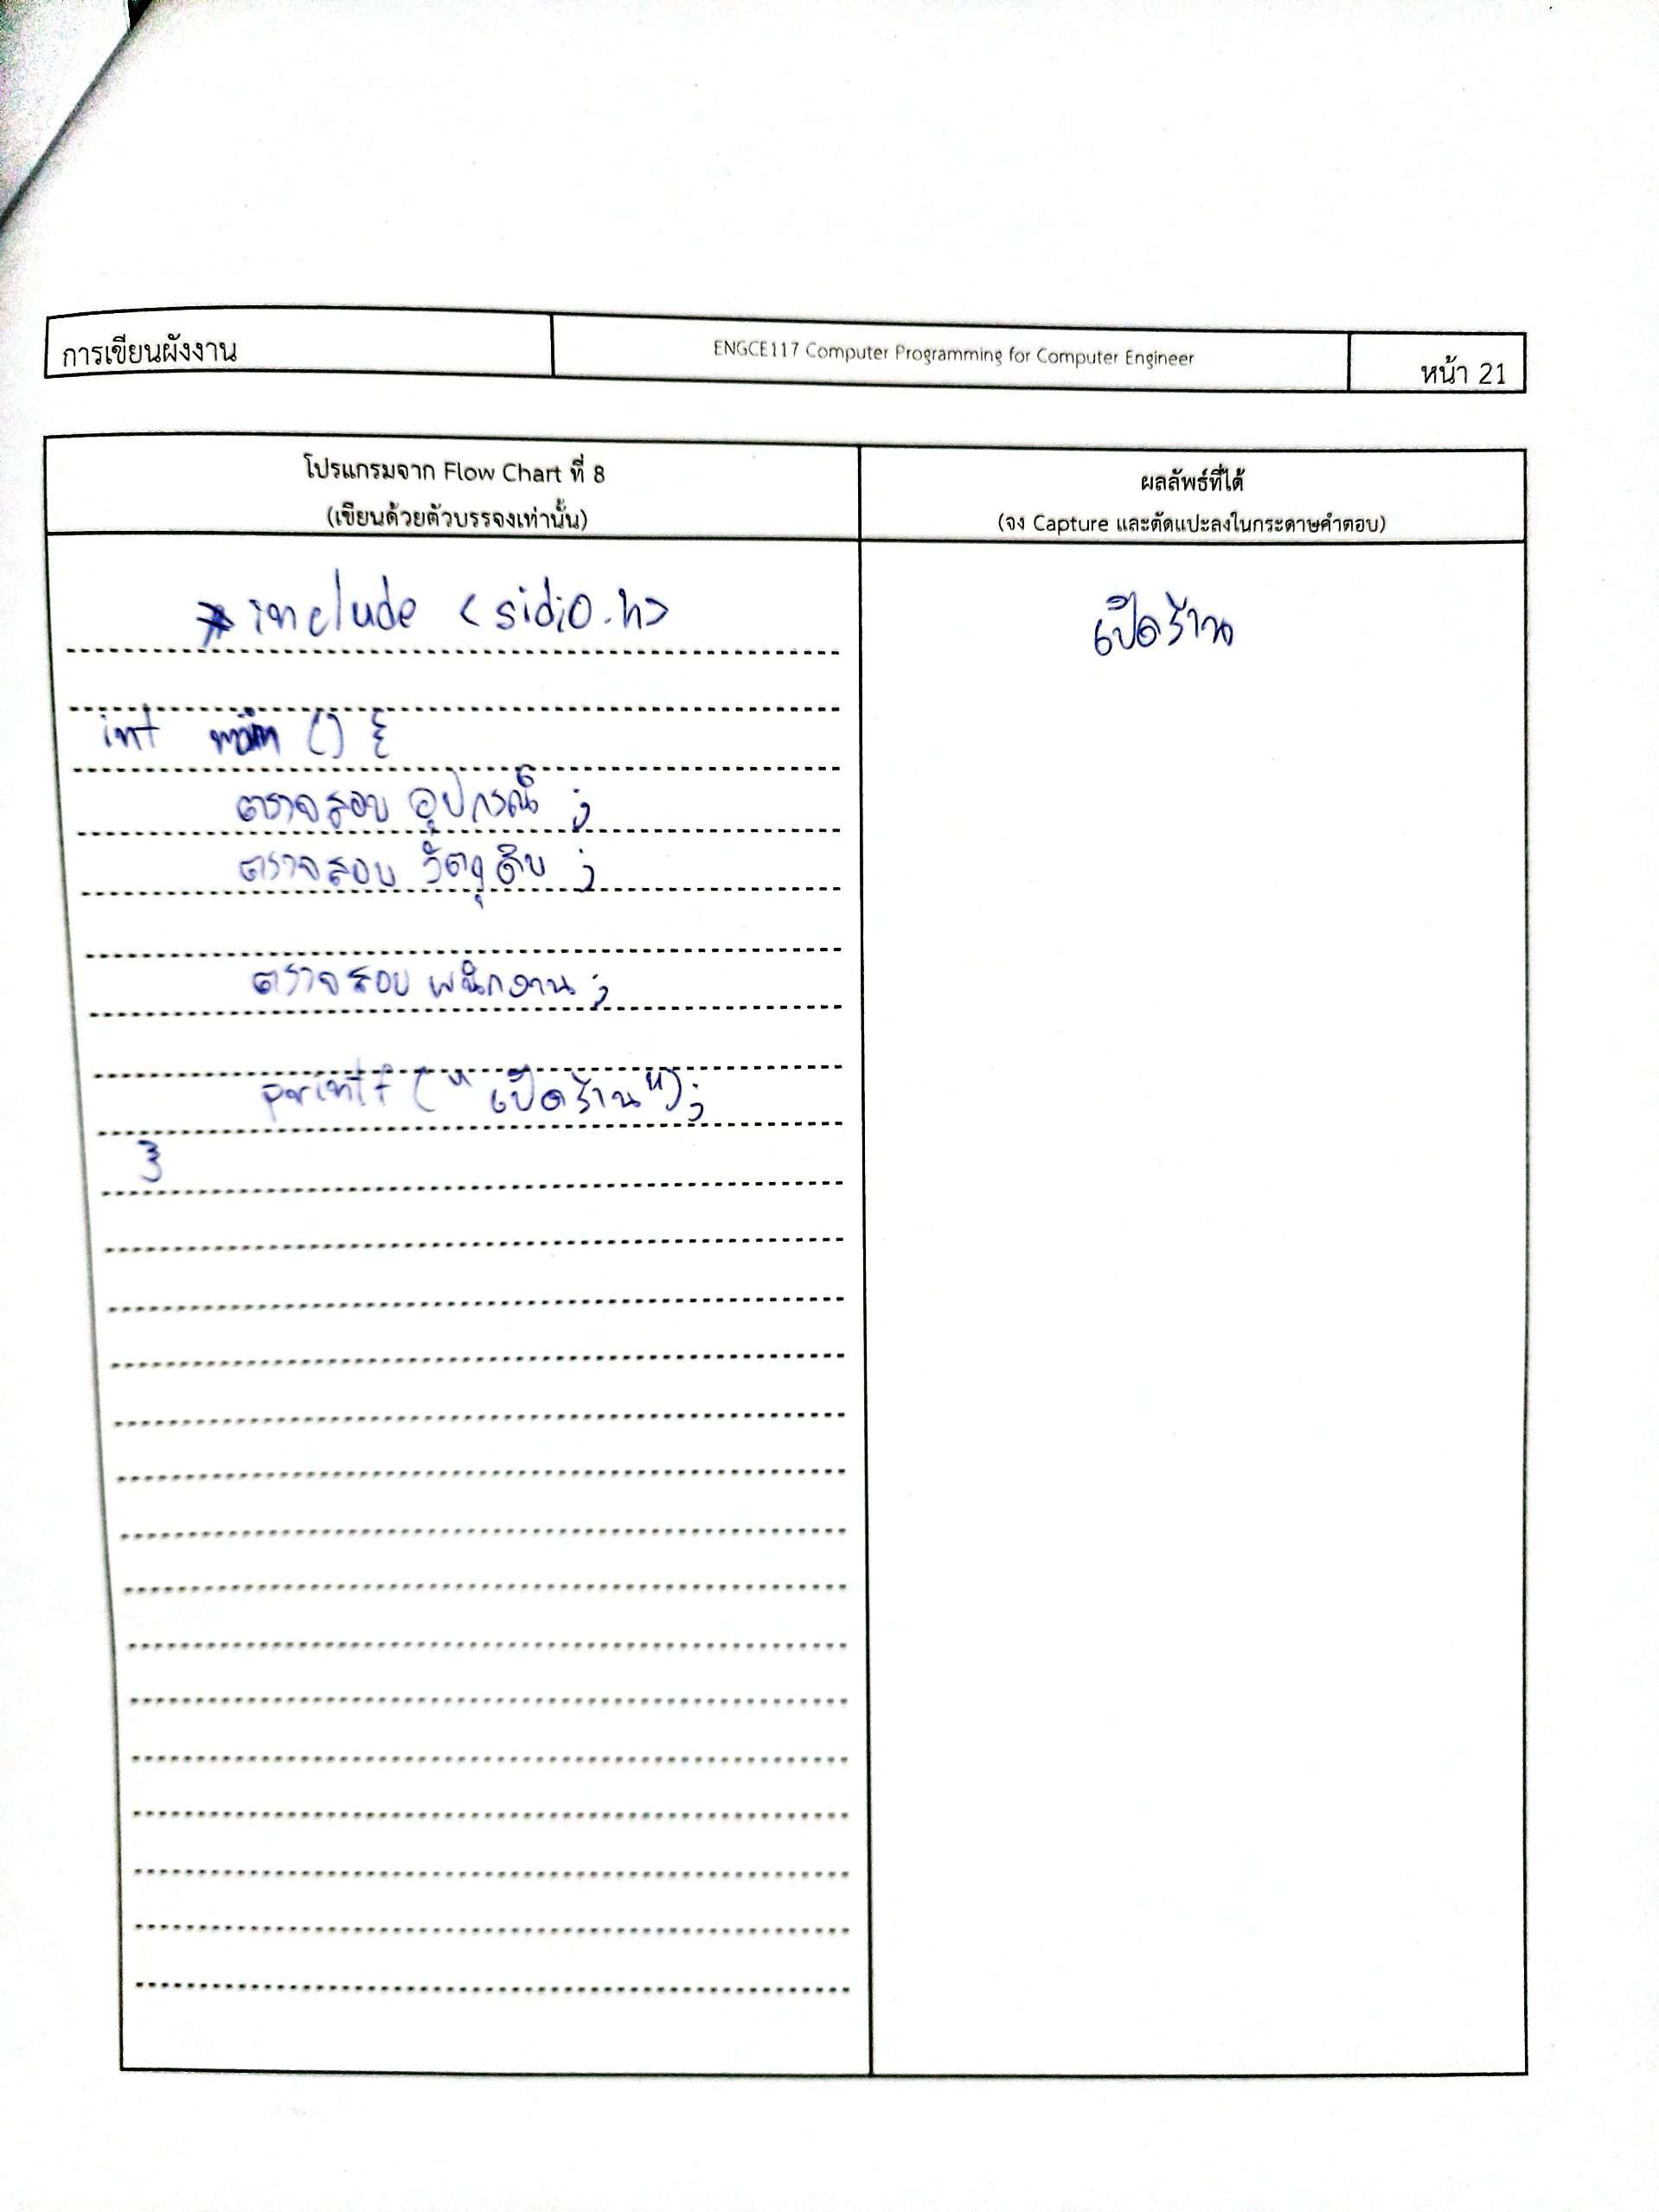 การเขียนผังงาน
ENGCE117 Computer Programming for Computer Engineer
หน้า 21
โปรแกรมจาก Flow Chart ที่ 8
(เขียนด้วยตัวบรรจงเท่านั้น)
ผลลัพธ์ที่ได้
(จง Capture และตัดแปะลงในกระดาษคำตอบ)
#include <sidio.h>
เปิดร้าน
int main () {
ตรวจสอบ อุปกรณ์ ;
ตรวจสอบ วัตถุดิบ ;
ตรวจสอบ พนักงาน ;
printf ("เปิดร้าน");
}